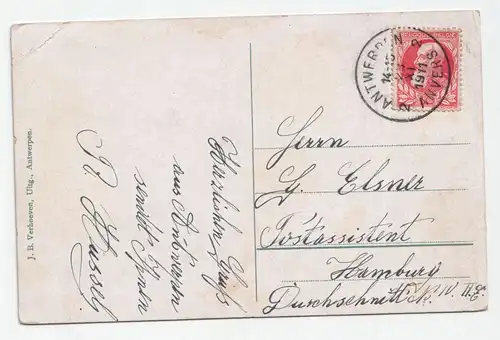 J. B. Verhoeven, Uitg., Antwerpen.
Herzlichen Gruß
aus Antwerpen
sendet Ihnen
ANTWERPEN 2
1911
2 ANVERS
Herrn
G. Elsner
Postassistent
Hamburg
Durchschnitt